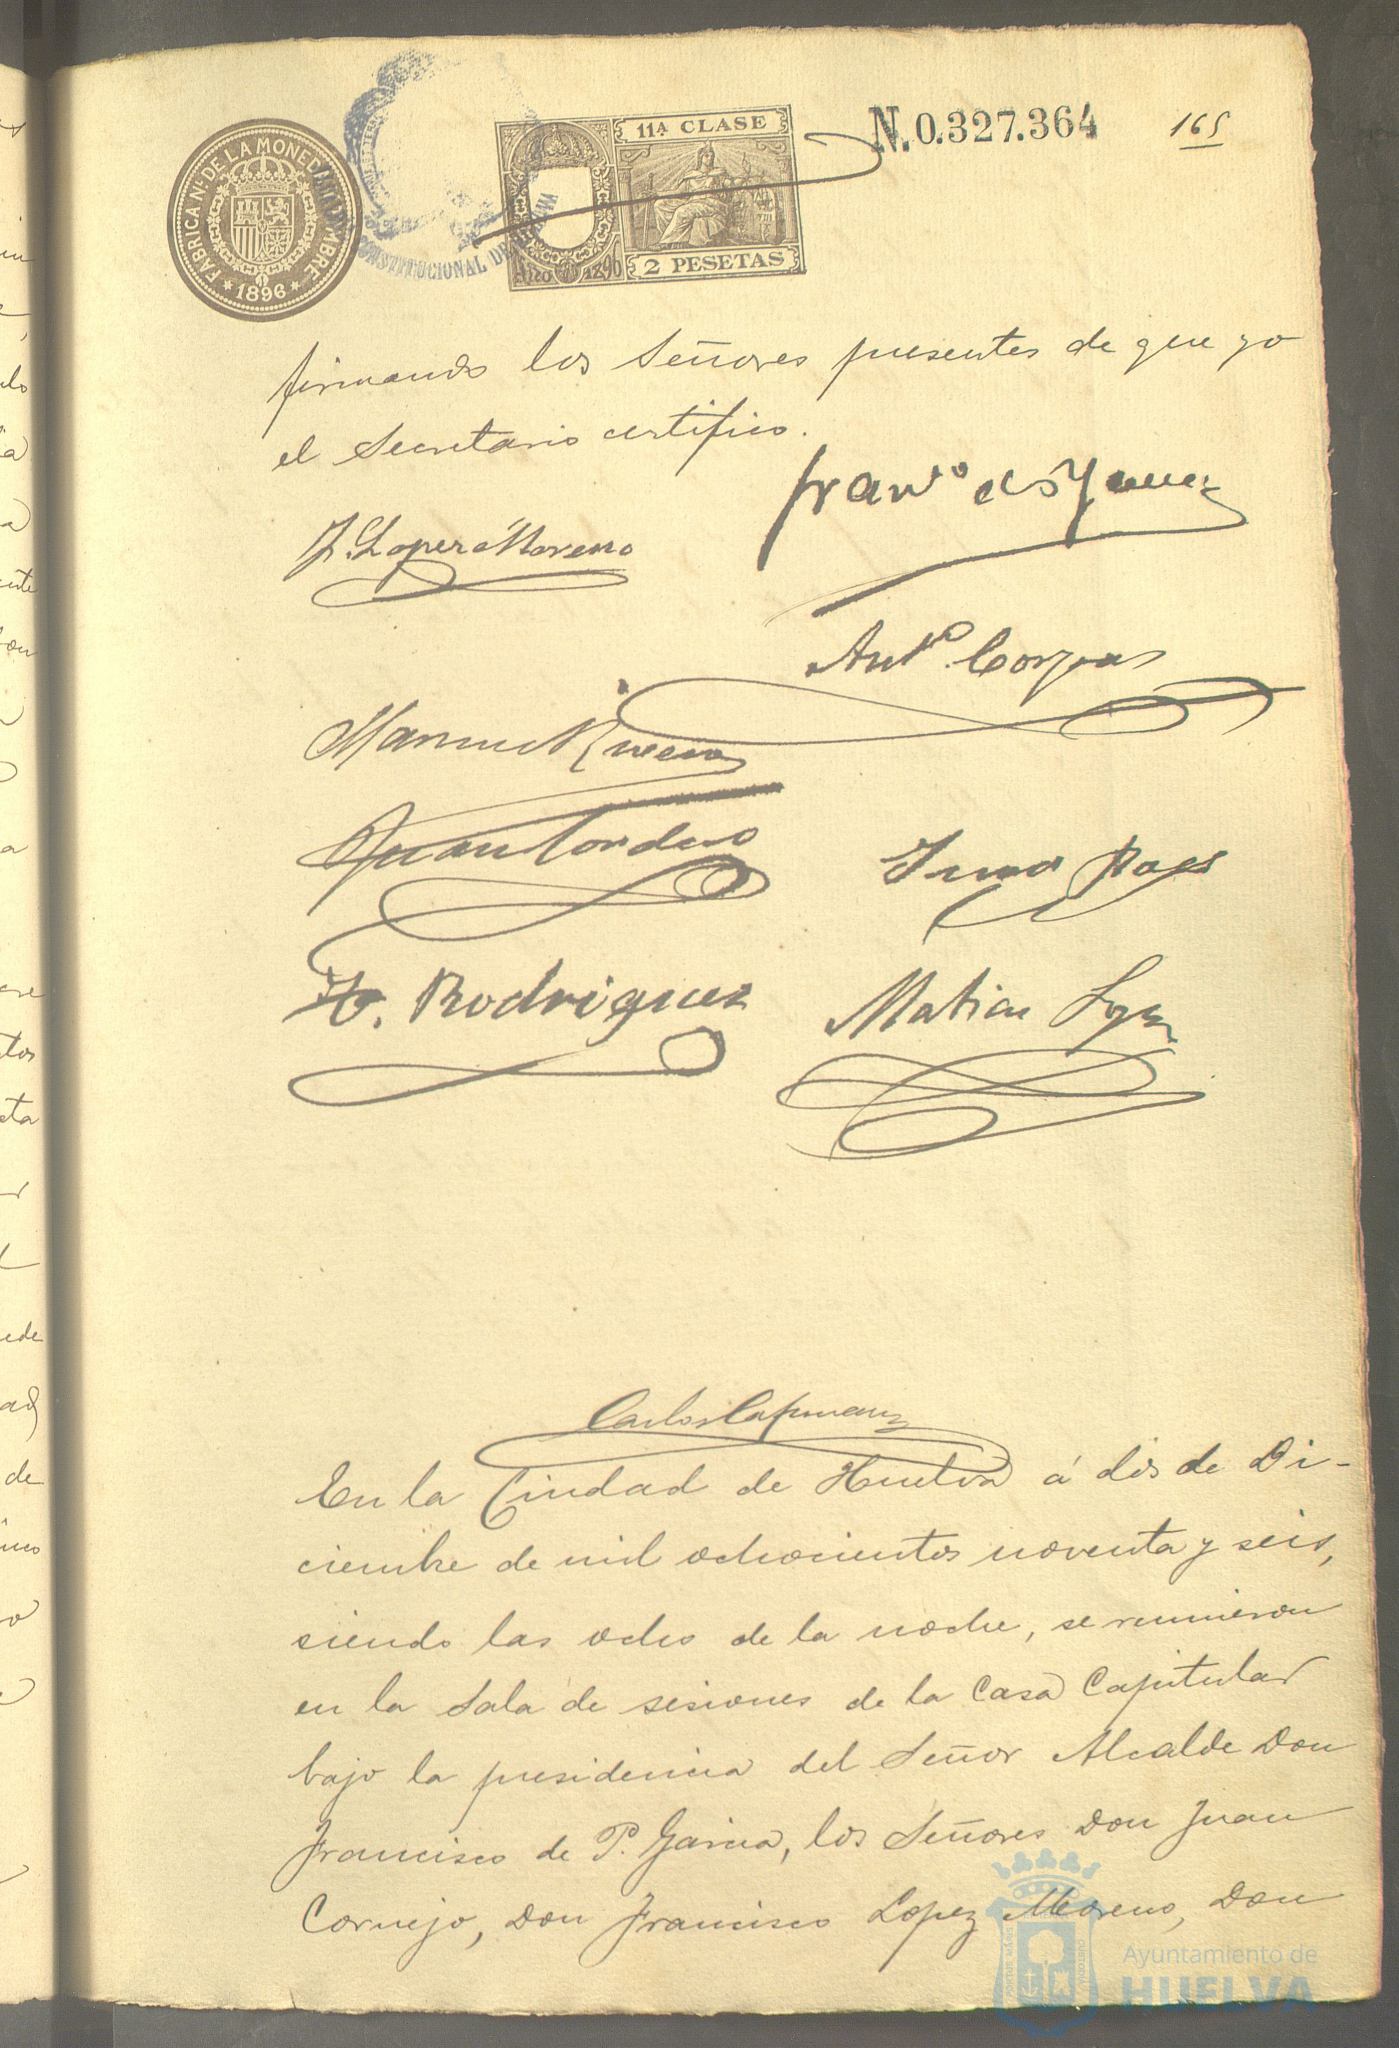 FABRICA N. DE LA MONEDA Y TIMBRE
* 1896 *
CONSTITUCIONAL DE HUELVA
11A CLASE
Año 1896
2 PESETAS
N.0.327.364
165
firmando los Señores presentes de que yo
el Secretario certifico.
Fran.co de P. Garcia
F. Lopez Moreno
Ant.o Corpas
Manuel Rivera
Juan Cordero
F. Rodriguez
Matias Lopez
Carlos
En la Ciudad de Huelva á dos de Di-
ciembre de mil ochocientos noventa y seis,
siendo las ocho de la noche, se reunieron
en la Sala de sesiones de la Casa Capitular
bajo la presidencia del Señor Alcalde Don
Francisco de P. Garcia, los Señores Don Juan
Cornejo, Don Francisco Lopez Moreno, Don
Ayuntamiento de
HUELVA